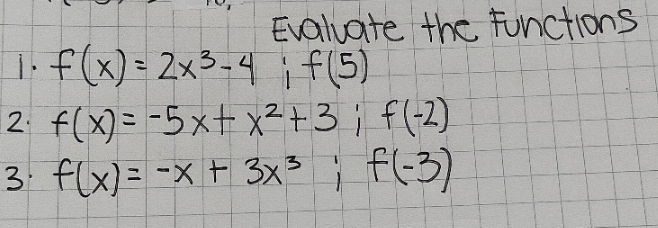 Evaluate the Functions
1. f(x) = 2x³-4 ; f(5)
2. f(x) = -5x + x² + 3 ; f(-2)
3. f(x) = -x + 3x³ ; f(-3)